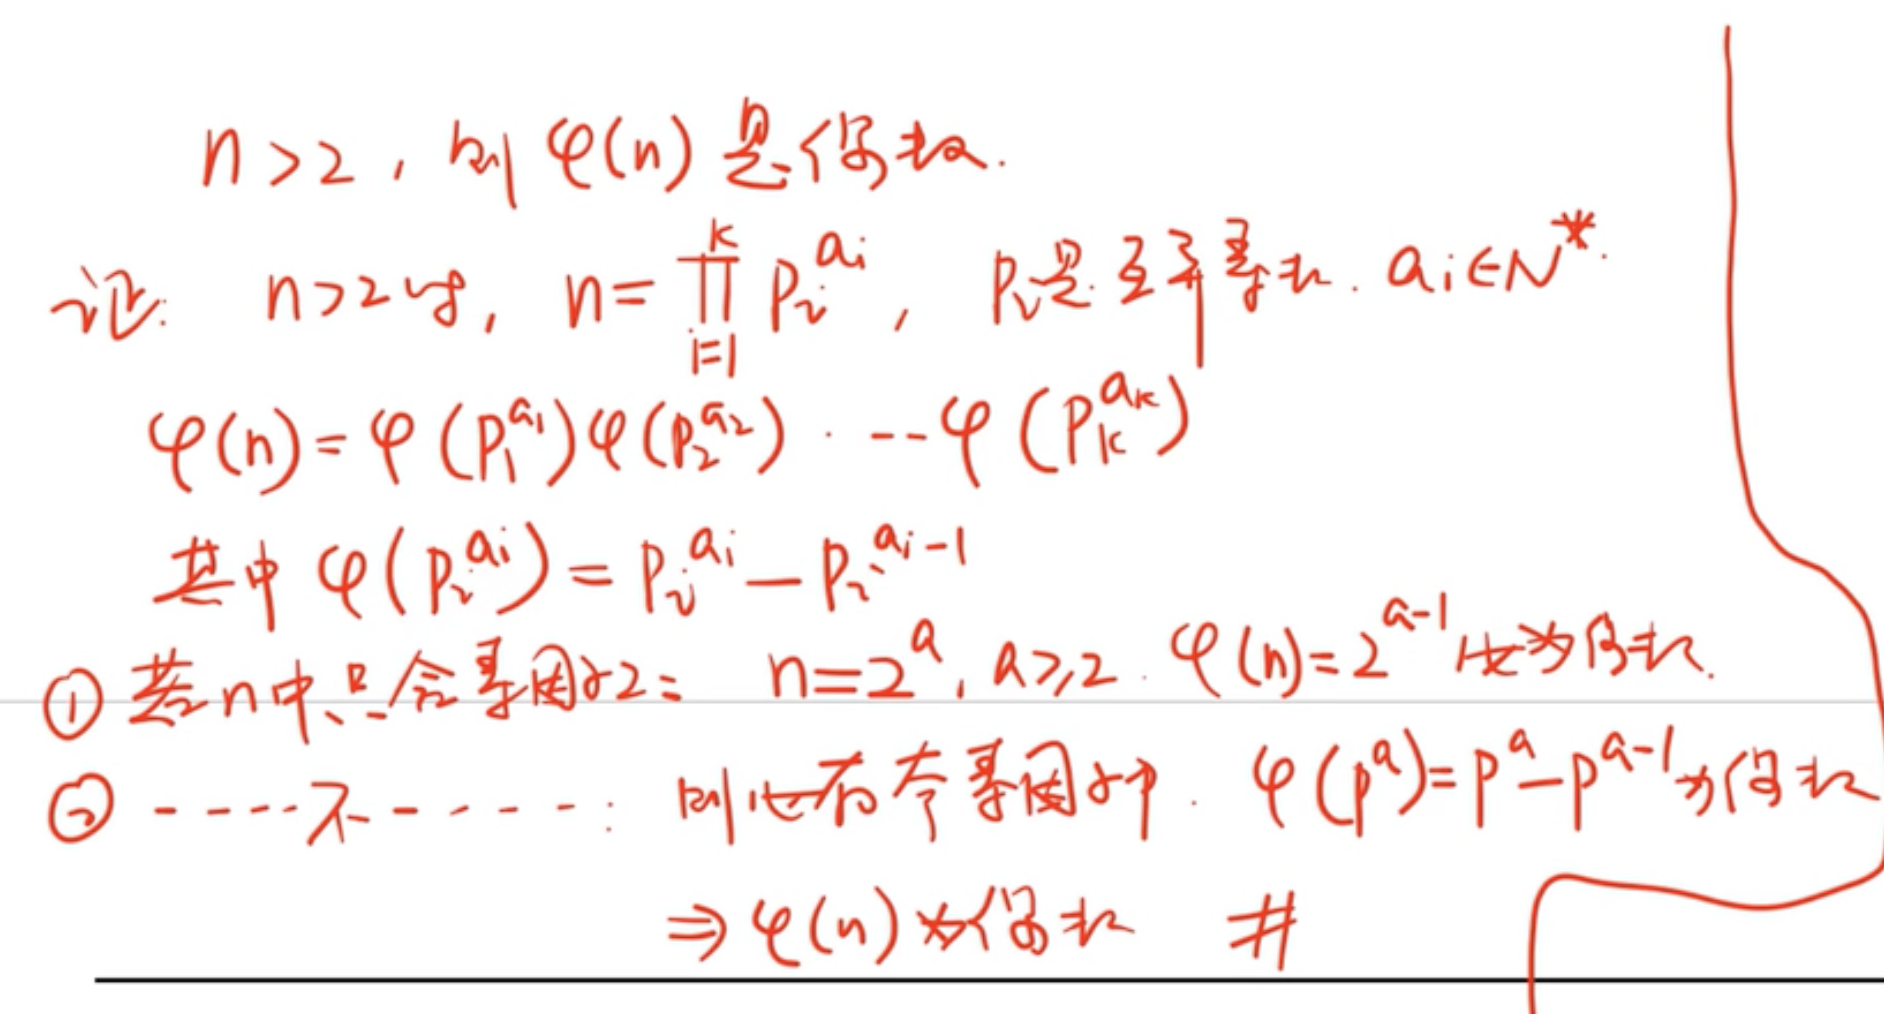 n>2,则φ(n)是偶数.
证: n>2时, n=∏_{i=1}^{k} p_i^{a_i}, p_i是互异素数. a_i∈N^*.
φ(n)=φ(p_1^{a_1})φ(p_2^{a_2})·--φ(p_k^{a_k})
其中φ(p_i^{a_i})=p_i^{a_i}-p_i^{a_i-1}
①若n中只含素因子2: n=2^a, a≥2. φ(n)=2^{a-1}必为偶数.
②----不-----: 则必有奇素因子p. φ(p^a)=p^a-p^{a-1}为偶数
⇒φ(n)为偶数 #